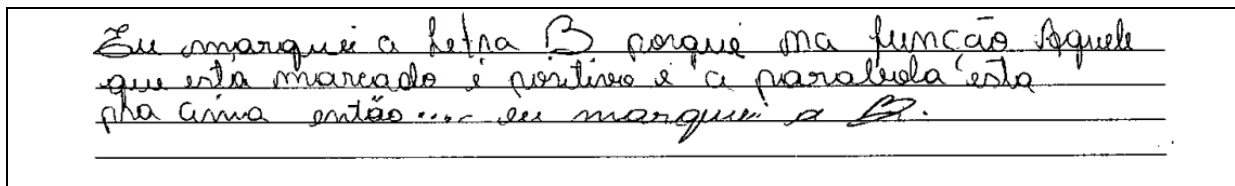 Eu marquei a Letra B porque na função Aquele
que está marcado é positivo e a parabola esta
pra cima então.... eu marquei a B.